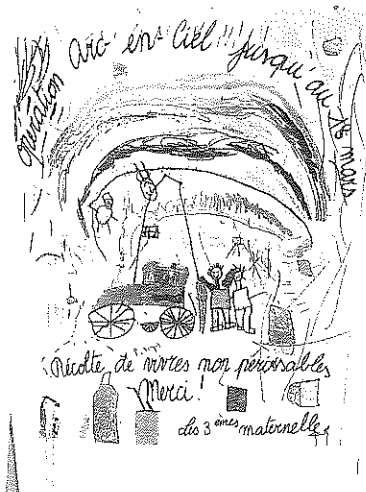 Opération Arc en Ciel !!! Jusqu'au 18 mars
Récolte de vivres non périssables
Merci !
Les 3èmes maternelles